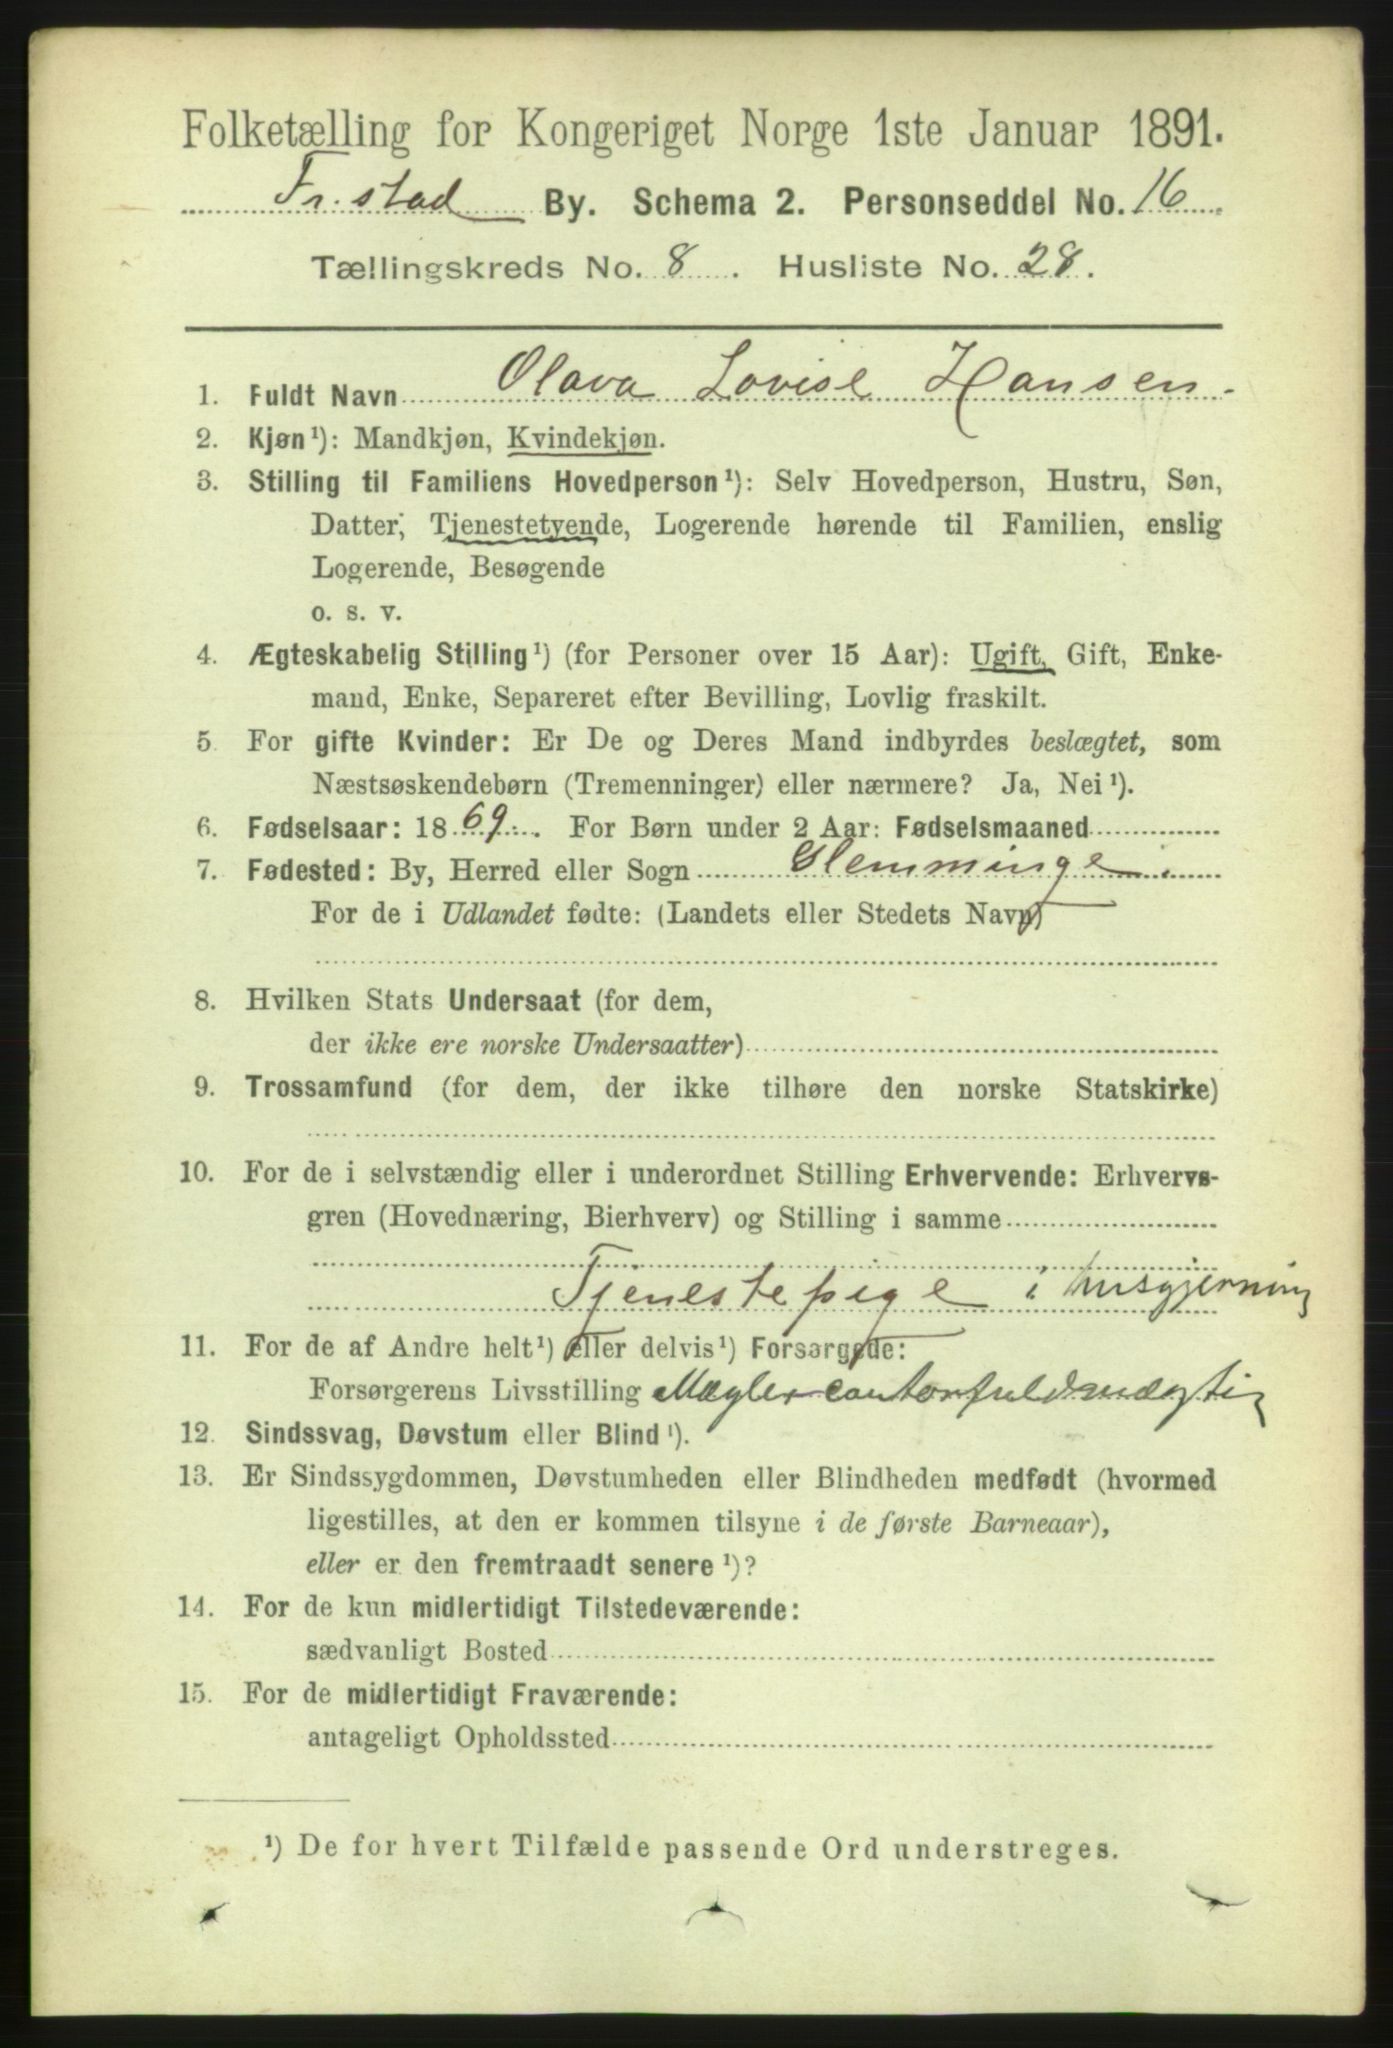 Folketælling for Kongeriget Norge 1ste Januar 1891.
Fr.stad By. Schema 2. Personseddel No. 16
Tællingskreds No. 8. Husliste No. 28.
1. Fuldt Navn Olava Lovise Hansen.
2. Kjøn¹): Mandkjøn, Kvindekjøn.
3. Stilling til Familiens Hovedperson¹): Selv Hovedperson, Hustru, Søn,
Datter, Tjenestetyende, Logerende hørende til Familien, enslig
Logerende, Besøgende
o. s. v.
4. Ægteskabelig Stilling¹) (for Personer over 15 Aar): Ugift, Gift, Enke-
mand, Enke, Separeret efter Bevilling, Lovlig fraskilt.
5 For gifte Kvinder: Er De og Deres Mand indbyrdes beslægtet, som
Næstsøskendebørn (Tremenninger) eller nærmere? Ja, Nei¹).
6. Fødselsaar: 1869. For Børn under 2 Aar: Fødselsmaaned
7. Fødested: By, Herred eller Sogn Glemminge
For de i Udlandet fødte: (Landets eller Stedets Navn)
8. Hvilken Stats Undersaat (for dem,
der ikke ere norske Undersaatter)
9. Trossamfund (for dem, der ikke tilhøre den norske Statskirke)
10. For de i selvstændig eller i underordnet Stilling Erhvervende: Erhvervs-
gren (Hovednæring, Bierhverv) og Stilling i samme
Tjenestepige i husgjerning
11. For de af Andre helt¹) eller delvis¹) Forsørgede:
Forsørgerens Livsstilling Mæglercontorfuldmægtig
12. Sindssvag, Døvstum eller Blind¹).
13. Er Sindssygdommen, Døvstumheden eller Blindheden medfødt (hvormed
ligestilles, at den er kommen tilsyne i de første Barneaar),
eller er den fremtraadt senere¹)?
14. For de kun midlertidigt Tilstedeværende:
sædvanligt Bosted
15. For de midlertidigt Fraværende:
antageligt Opholdssted
¹) De for hvert Tilfælde passende Ord understreges.